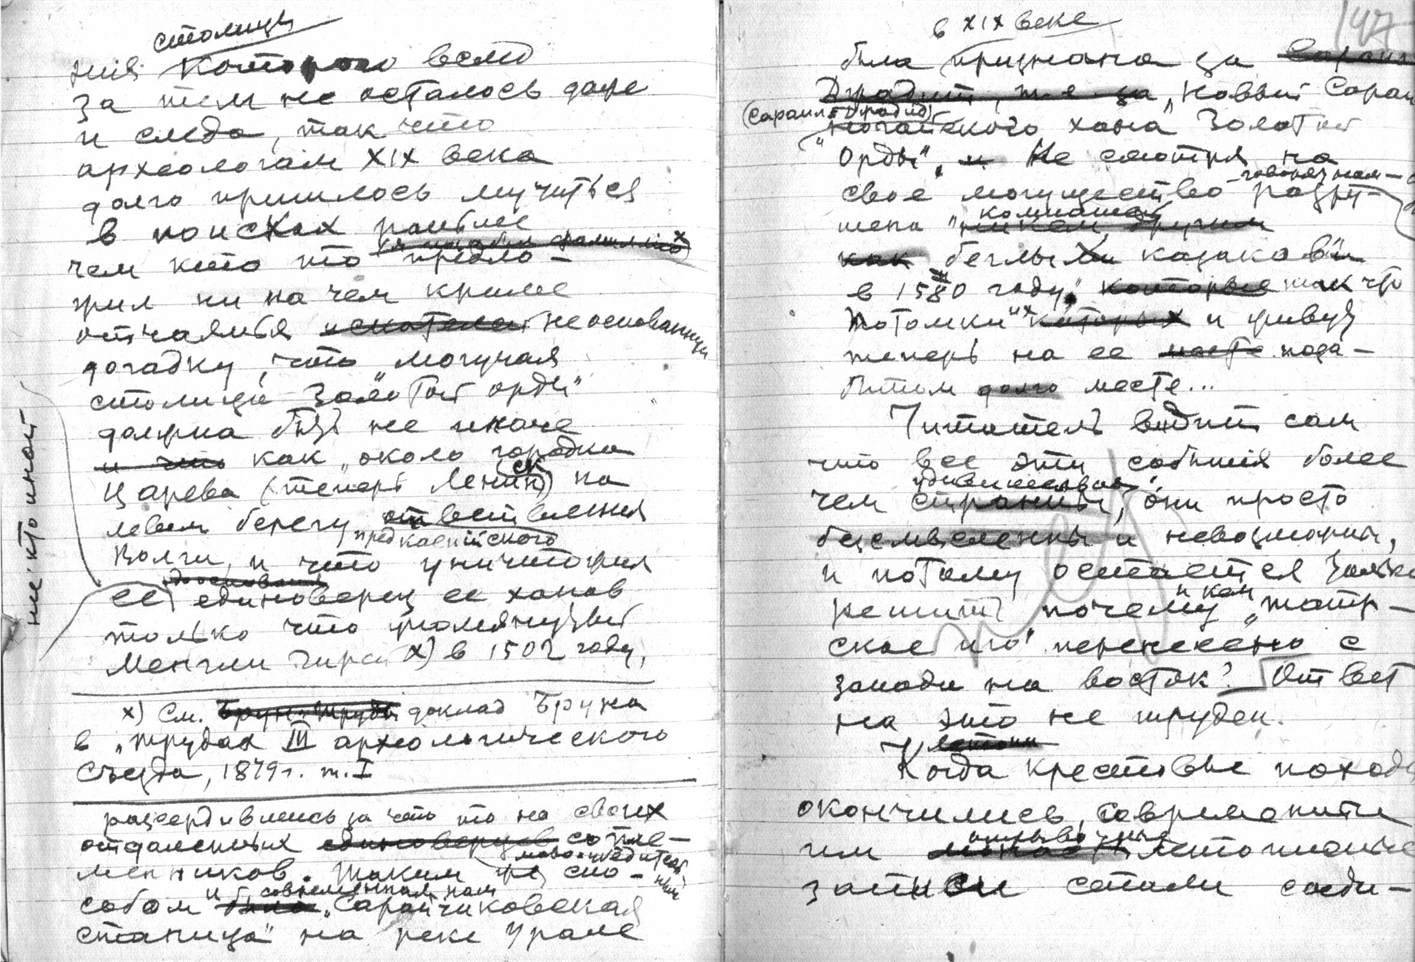 столица
ния которого всмо
за тем не осталось даже
и следа, так что
археологам XIX века
долго пришлось мучиться
в поисках раньше
чем кто то предло-
жил ни на чем кроме
отчаянья не основанную
догадку, что „могучая
столица Золотой орды"
должна быть не иначе
и что как „около городка
Царева (теперь Ленинск) на
левом берегу ответвления
предкаспийского
Волги, и что уничтожил
до основания
ее единоверец ее ханов
только что упомянутый
Менгли Гирей х) в 1502 году,
ни кто иной
х) См. доклад Бруна
в „трудах III археологического
съезда, 1879 г. т. I
рассердившись за что то на своих
отдаленных единоверцев сопле-
менников. Таким же спо-
собом и современная нам „Сарайчиковская
станица" на реке Урале
в XIX веке
147
была признана за
Джадит, т.е. за „Новый Сарай
ногайского хана" Золотой
„Орды", и Не смотря на
свое могущество разру-
шена „
как беглых казаков"
в 1580 году, которые так что
потомки их которых и живут
теперь на ее месте поза-
бытом долго месте...
Читатель видит сам
что все эти события более
чем странны, они просто
бессмысленны и невозможны,
и потому остается только
решить почему и кем „татар-
ское иго" перенесено с
запада на восток? Ответ
на это не труден.
Когда крестовые походы
окончились, современные
им отрывочные летописные
записи стали соеди-